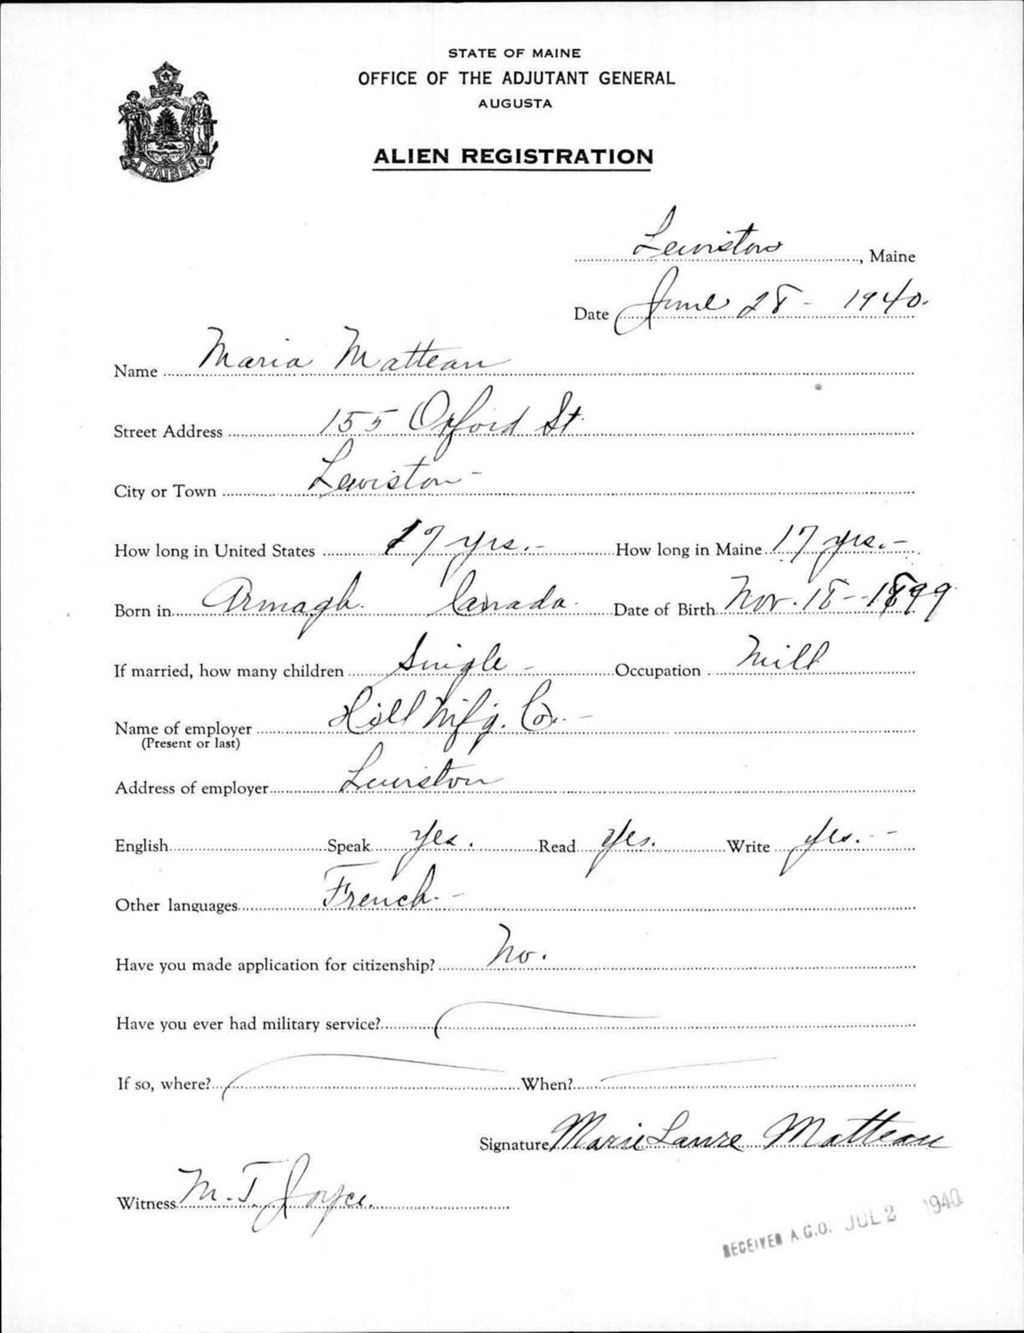 STATE OF MAINE
OFFICE OF THE ADJUTANT GENERAL
AUGUSTA
MAINE
ALIEN REGISTRATION
Lewiston, Maine
Date June 28 - 1940.
Name Maria Matteau
Street Address 155 Oxford St.
City or Town Lewiston -
How long in United States 17 yrs. - How long in Maine 17 yrs. -
Born in Armagh. Canada. Date of Birth Nov. 18 - 1899
If married, how many children Single - Occupation Mill
Name of employer Hill Mfg. Co. -
(Present or last)
Address of employer Lewiston
English Speak Yes. Read Yes. Write Yes. -
Other languages French. -
Have you made application for citizenship? No.
Have you ever had military service?
If so, where? When?
Signature Marie Laure Matteau
Witness M. T. Joyce.
RECEIVED A.G.O. JUL 2 1940